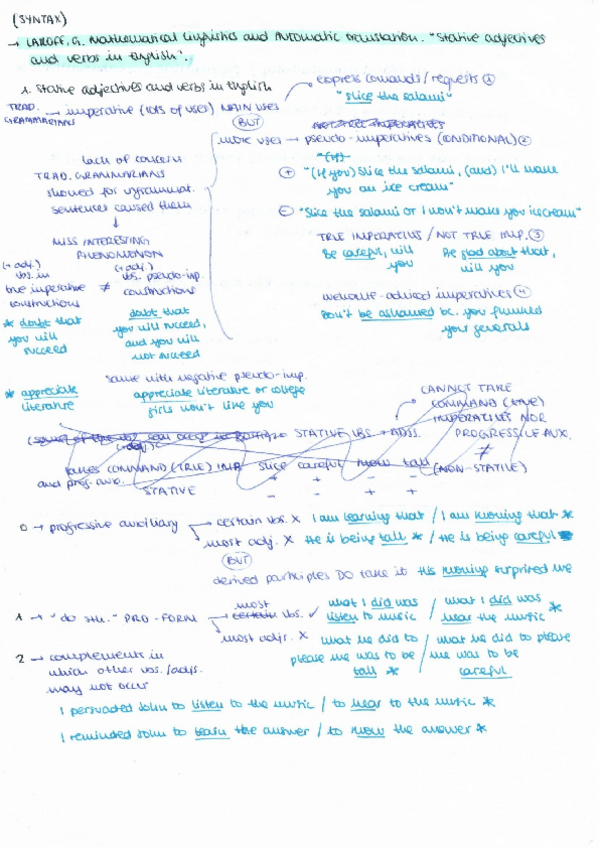 (SYNTAX)
→ LAKOFF, G. Mathematical linguistics and Automatic translation. "Stative adjectives
and verbs in English".
1. Stative adjectives and verbs in English
TRAD. GRAMMARIANS → imperative (lots of uses) MAIN USES
express comands/requests ①
"slice the salami"
BUT
more uses → pseudo-imperatives (CONDITIONAL) ②
"(If)
⊕ "(If you) slice the salami, (and) I'll make
you an ice cream"
⊖ "Slice the salami or I won't make you icecream"
TRUE IMPERATIVES / NOT TRUE IMP. ③
Be careful, will you
Be glad about that, will you
welcome-advised imperatives ④
Don't be ashamed bc. you flunked
your generals
lack of concern
TRAD. GRAMMARIANS
showed for ungrammat.
sentences caused them
↓
MISS INTERESTING
PHENOMONON
(+ adj.)
vbs. in
true imperative
constructions
≠
(+ adj.)
vbs. pseudo-imp.
constructions
* doubt that
you will
succeed
doubt that
you will succeed,
and you will
not succeed
same with negative pseudo-imp.
* appreciate
literature
appreciate literature or college
girls won't like you
STATIVE VBS + ADJS.
CANNOT TAKE
COMMAND (TRUE)
IMPERATIVES NOR
PROGRESSIVE AUX.
≠
(NON-STATIVE)
COMMAND (TRUE) IMP.
and prog. aux.
slice careful know tall
+ + - -
STATIVE - - + +
0 → progressive auxiliary
certain vbs. X I am learning that / I am knowing that *
most adj. X He is being tall * / He is being careful
BUT
derived participles DO take it His knowing surprised me
1 → "do sth." PRO-FORM
most certain vbs. ✓ what I did was listen to music / what I did was hear the music *
most adjs. X what he did to please me was to be tall * / what he did to please me was to be careful
2 → complements in
which other vbs./adjs.
may not occur
I persuaded John to listen to the music / to hear to the music *
I reminded John to learn the answer / to know the answer *